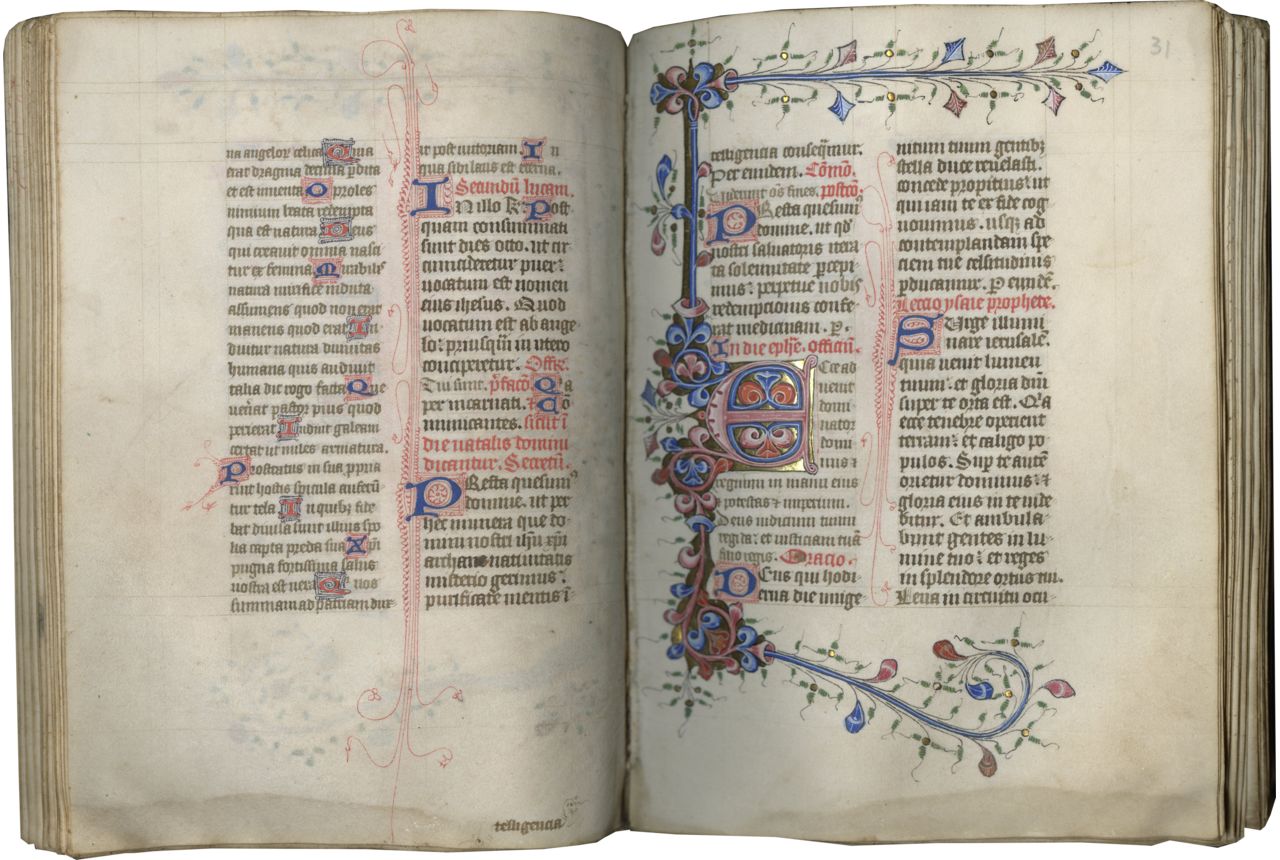 na angelor celica Quia
erat dragma decima pdita
et est inuenta O proles
nimium beata redempta
qua est natura Deus
qui creauit omnia nasci
tur ex femina Mirabilis
natura mirifice induta
assumens quod non erat
manens quod erat In
duitur natura diuinitas
humana quis audiuit
talia dic rogo facta Que
uerat pastor pius quod
perierat Induit galeam
certat ut miles armatura.
Prostratus in sua ppria
ruit hostis spicula auferū
tur tela. In quibz fide
bat diuisa sunt illius spo
lia capta preda sua Xpi
pugna fortissima salus
nostra est uera Qui nos
suam ad patriam dux
it post uictoriam. In
qua sibi laus est eterna.
Secundū lucam.
IN illo t̄. Post
quam consummati
sunt dies octo. ut cir
cumcideretur puer:
uocatum est nomen
eius ihesus. Quod
uocatum est ab ange
lo: priusqm̄ in utero
conciperetur. Offr̄.
Tui sunt. p̄facō. Qa
per incarnati. Cō
municantes. sicut ī
die natalis domini
dicantur. Secretū.
PResta quesumꝰ
domine. ut per
hec munera que do
mini nostri ihū xp̄i
archane natiuitatis
misterio gerimus:
purificate mentis ī
telligencia
31
telligencia consequm̄ur.
Per eundem. Cōmō.
Viderunt oēs fines. postcō.
PResta quesumꝰ
domine. ut qd̄
nostri saluatoris itera
ta solemnitate percepi
mus: perpetue nobis
redempcionis confe
rat medicinam. P.
In die epħie. officiū.
Ecce ad
uenit
domi
nator
domi
nus:
regnum in manu eius
potestas et imperium.
Deus iudicium tuum
regi da: et iusticiam tuā
filio regis. Oracio.
DEus qui hodi
erna die unige
nitum tuum gentibꝫ
stella duce reuelasti.
concede propitius: ut
qui iam te ex fide cog
nouimus. usqz ad
contemplandam spe
ciem tue celsitudinis
pducamur. P eundē.
Lectio ysaie prophete.
SUrge illumi
nare ierusalē.
quia uenit lumen
tuum: et gloria dnī
super te orta est. Qa
ecce tenebre operient
terram: et caligo po
pulos. Sup te autē
orietur dominus: et
gloria eius in te uide
bitur. Et ambula
bunt gentes in lu
mine tuo: et reges
in splendore ortus tui.
Leua in circuitu ocu